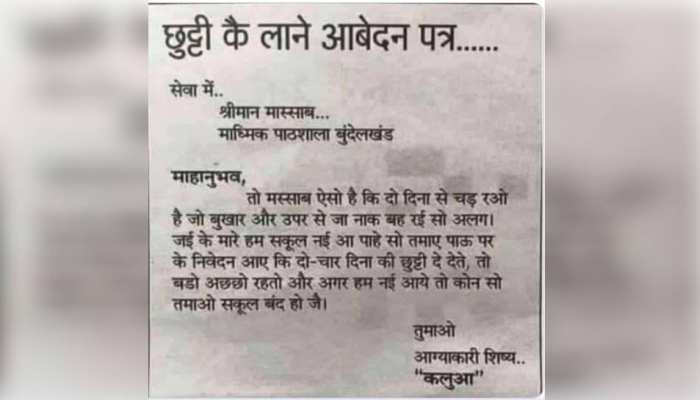 छुट्टी कै लाने आबेदन पत्र......
सेवा में..
श्रीमान मास्साब...
माध्मिक पाठशाला बुंदेलखंड
माहानुभव,
तो मस्साब ऐसो है कि दो दिना से चड़ रओ
है जो बुखार और उपर से जा नाक बह रई सो अलग।
जई के मारे हम सकूल नई आ पाहे सो तमाए पाऊ पर
के निवेदन आए कि दो-चार दिना की छुट्टी दे देते, तो
बडो अछछो रहतो और अगर हम नई आये तो कोन सो
तमाओ सकूल बंद हो जै।
तुमाओ
आग्याकारी शिष्य..
"कलुआ"